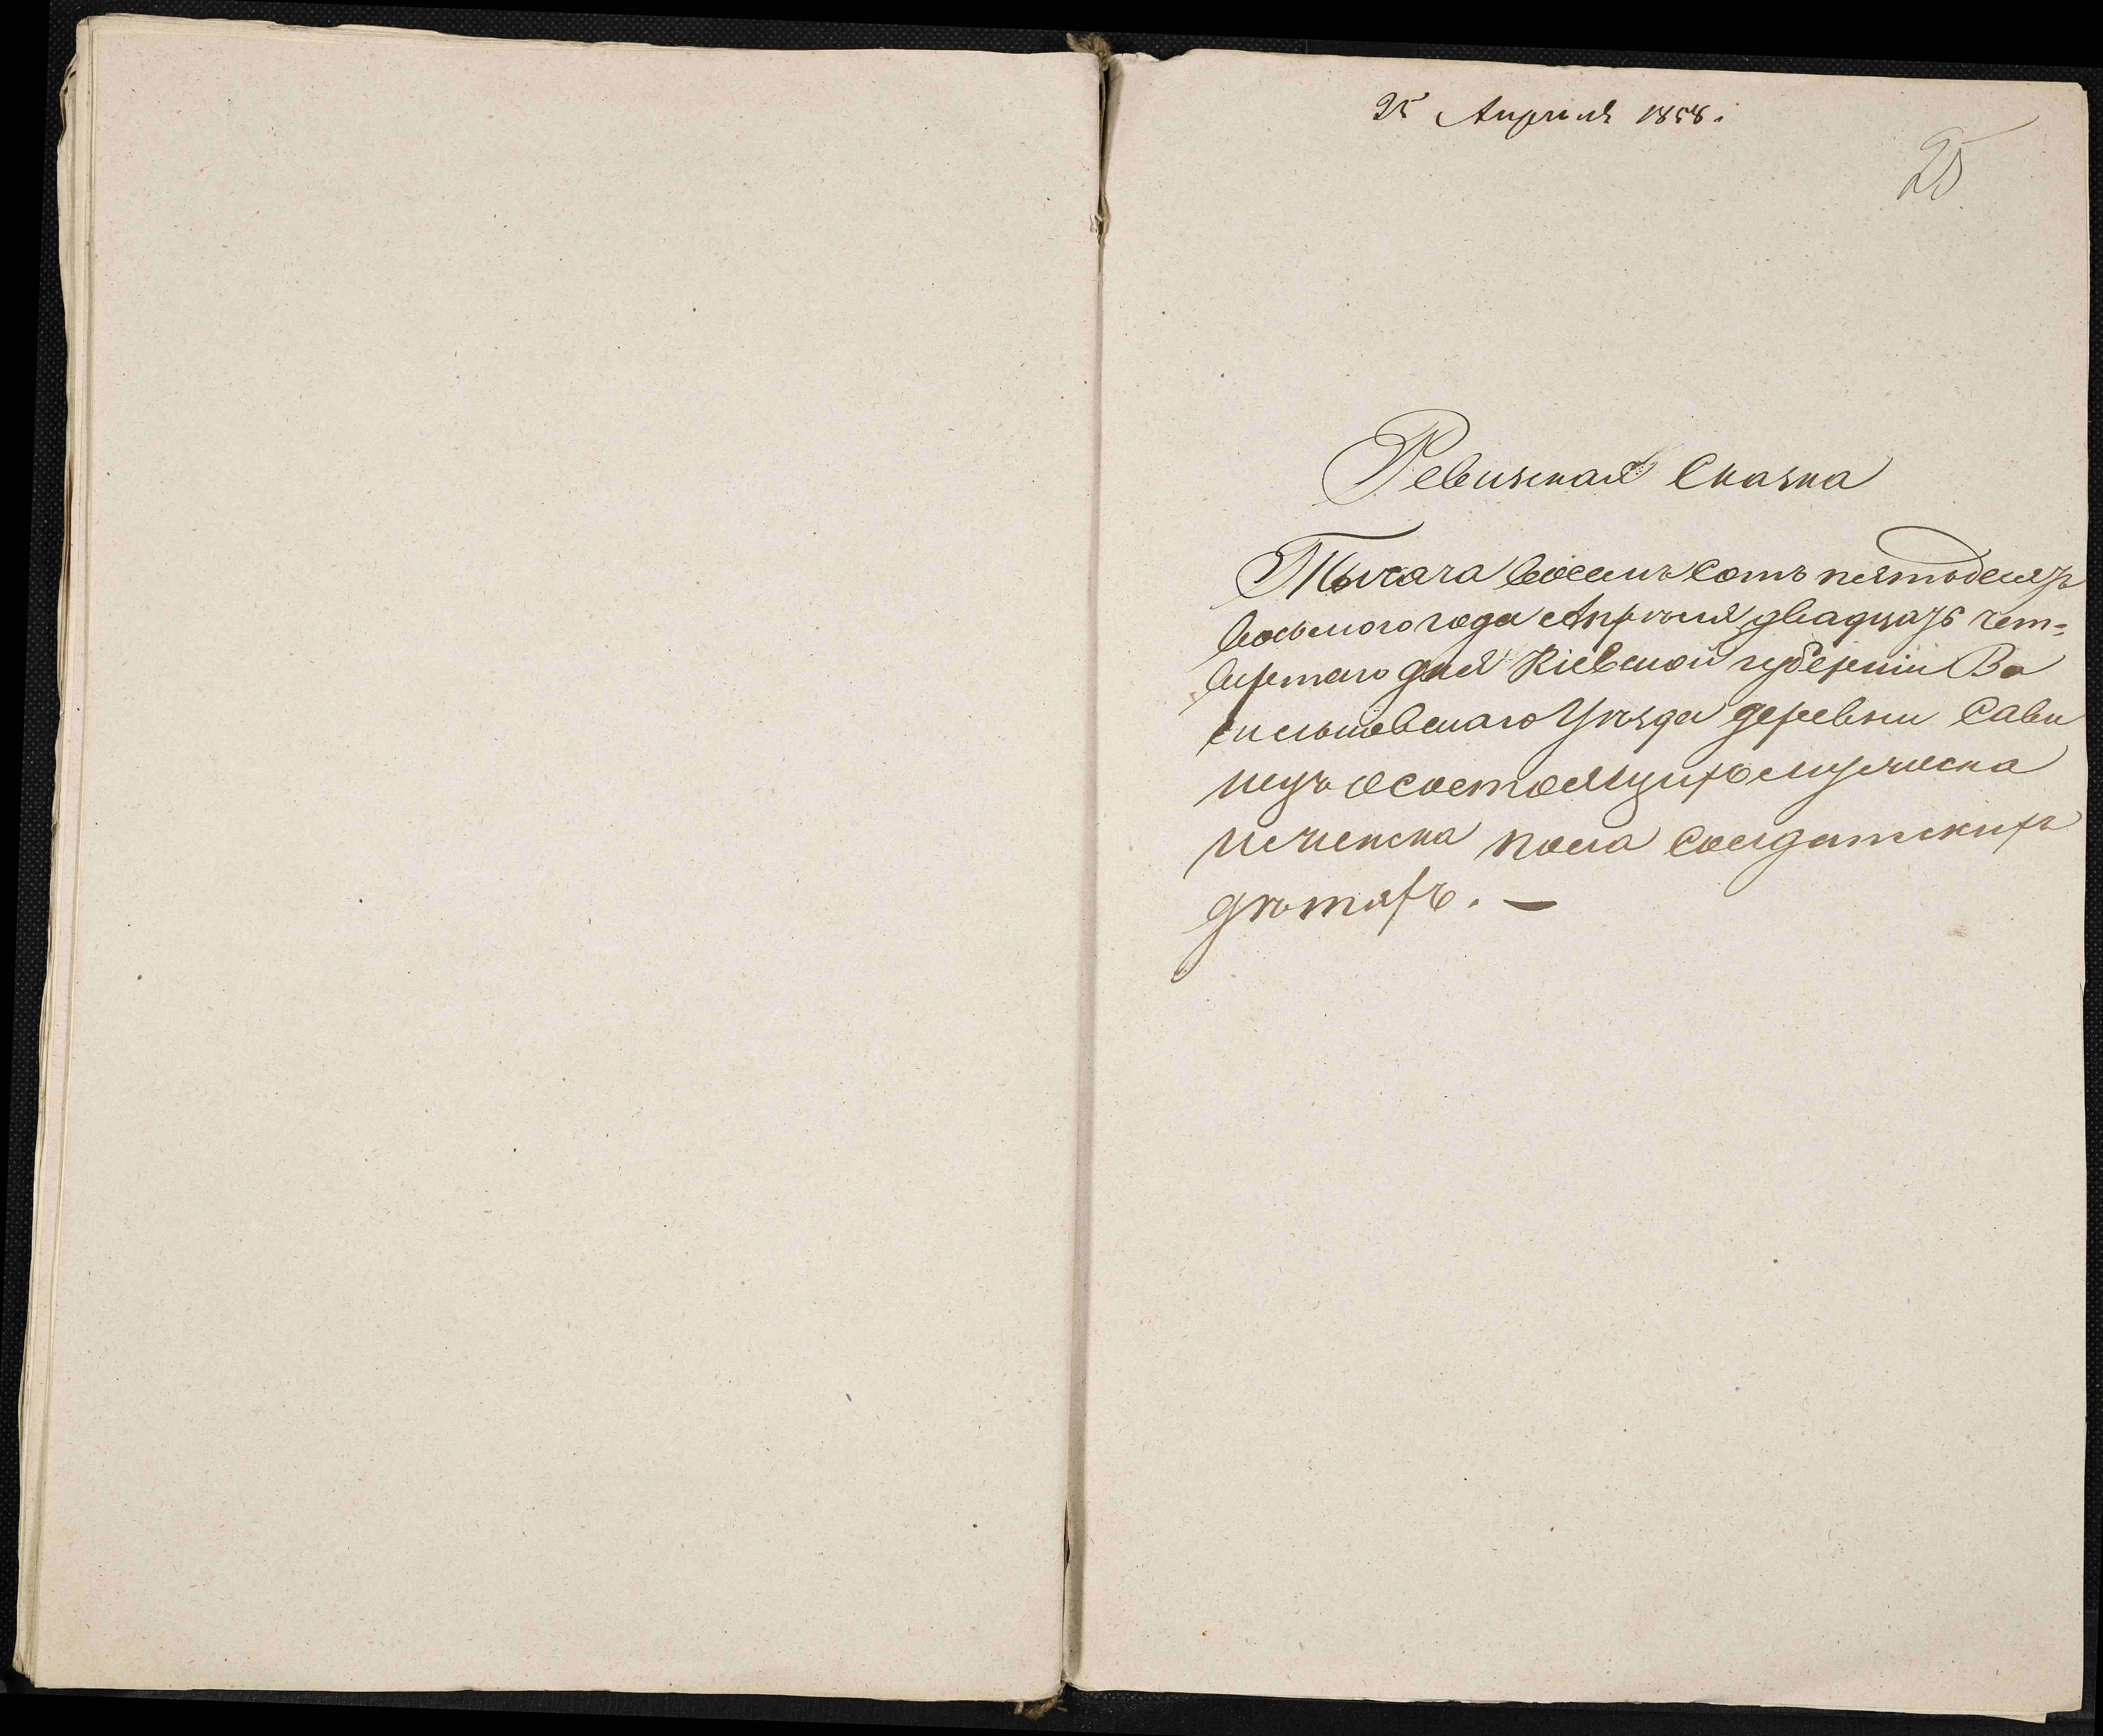 25 Апрѣля 1858.
25
Ревизская Сказка
Тысяча восемь сотъ пятьдесятъ
восьмого года Апрѣля двадцать чет=
вертаго дня Кіевской губерніи Ва
сильковскаго Уѣзда деревни Сави
нецъ о состоящихъ мужеска
и женска пола Солдатскихъ
дѣтяхъ. —